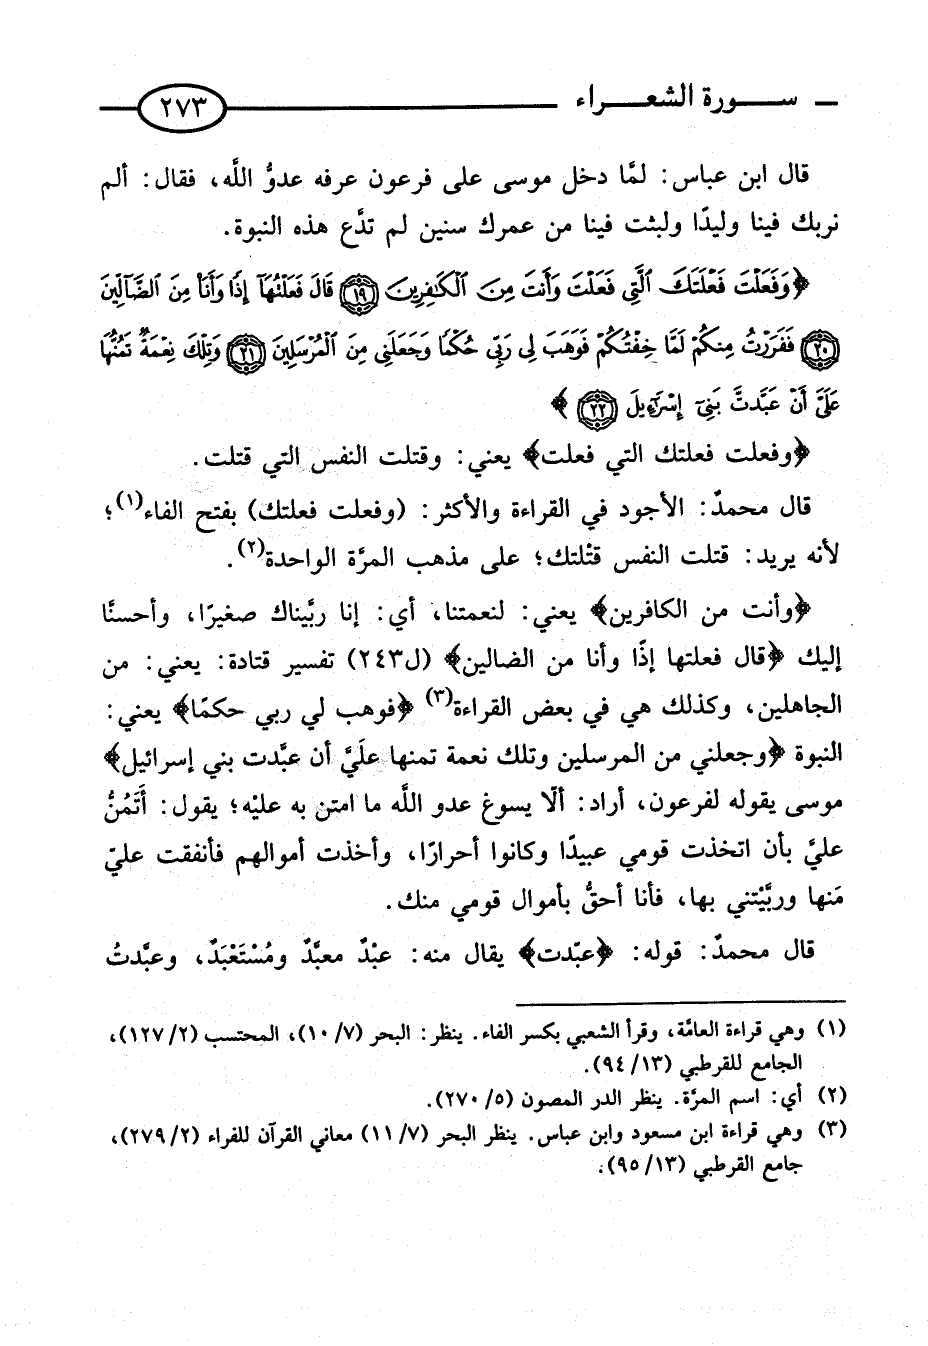 ـ سـورة الشعـراء
٢٧٣
قال ابن عباس: لمَّا دخل موسى على فرعون عرفه عدوُّ اللَّه، فقال: ألم
نربك فينا وليدًا ولبثت فينا من عمرك سنين لم تدَّع هذه النبوة.
﴿وَفَعَلْتَ فَعْلَتَكَ ٱلَّتِي فَعَلْتَ وَأَنتَ مِنَ ٱلْكَٰفِرِينَ ١٩ قَالَ فَعَلْتُهَآ إِذًا وَأَنَا۠ مِنَ ٱلضَّآلِّينَ
٢٠ فَفَرَرْتُ مِنكُمْ لَمَّا خِفْتُكُمْ فَوَهَبَ لِي رَبِّي حُكْمًا وَجَعَلَنِي مِنَ ٱلْمُرْسَلِينَ ٢١ وَتِلْكَ نِعْمَةٌ تَمُنُّهَا
عَلَيَّ أَنْ عَبَّدتَّ بَنِيٓ إِسْرَٰٓءِيلَ ٢٢ ﴾
﴿وفعلت فعلتك التي فعلت﴾ يعني: وقتلت النفس التي قتلت.
قال محمدٌ: الأجود في القراءة والأكثر: (وفعلت فعلتك) بفتح الفاء(١)؛
لأنه يريد: قتلت النفس قتْلتك؛ على مذهب المرَّة الواحدة(٢).
﴿وأنت من الكافرين﴾ يعني: لنعمتنا، أي: إنا ربَّيناك صغيرًا، وأحسنَّا
إليك ﴿قال فعلتها إذًا وأنا من الضالين﴾ (ل٢٤٣) تفسير قتادة: يعني: من
الجاهلين، وكذلك هي في بعض القراءة(٣) ﴿فوهب لي ربي حكمًا﴾ يعني:
النبوة ﴿وجعلني من المرسلين وتلك نعمة تمنها علَيَّ أن عبَّدت بني إسرائيل﴾
موسى يقوله لفرعون، أراد: ألَّا يسوغ عدو اللَّه ما امتن به عليْه؛ يقول: أَتَمُنُّ
عليَّ بأن اتخذت قومي عبيدًا وكانوا أحرارًا، وأخذت أموالهم فأنفقت عليّ
مَنها وربَّيْتني بها، فأنا أحقُّ بأموال قومي منك.
قال محمدٌ: قوله: ﴿عبّدت﴾ يقال منه: عبْدٌ معبَّدٌ ومُسْتَعْبَدٌ، وعبَّدتُ
(١) وهي قراءة العامَّة، وقرأ الشعبي بكسر الفاء. ينظر: البحر (٧/ ١٠)، المحتسب (٢/ ١٢٧)،
الجامع للقرطبي (١٣/ ٩٤).
(٢) أي: اسم المرَّة. ينظر الدر المصون (٥/ ٢٧٠).
(٣) وهي قراءة ابن مسعود وابن عباس. ينظر البحر (٧/ ١١) معاني القرآن للفراء (٢/ ٢٧٩)،
جامع القرطبي (١٣/ ٩٥).